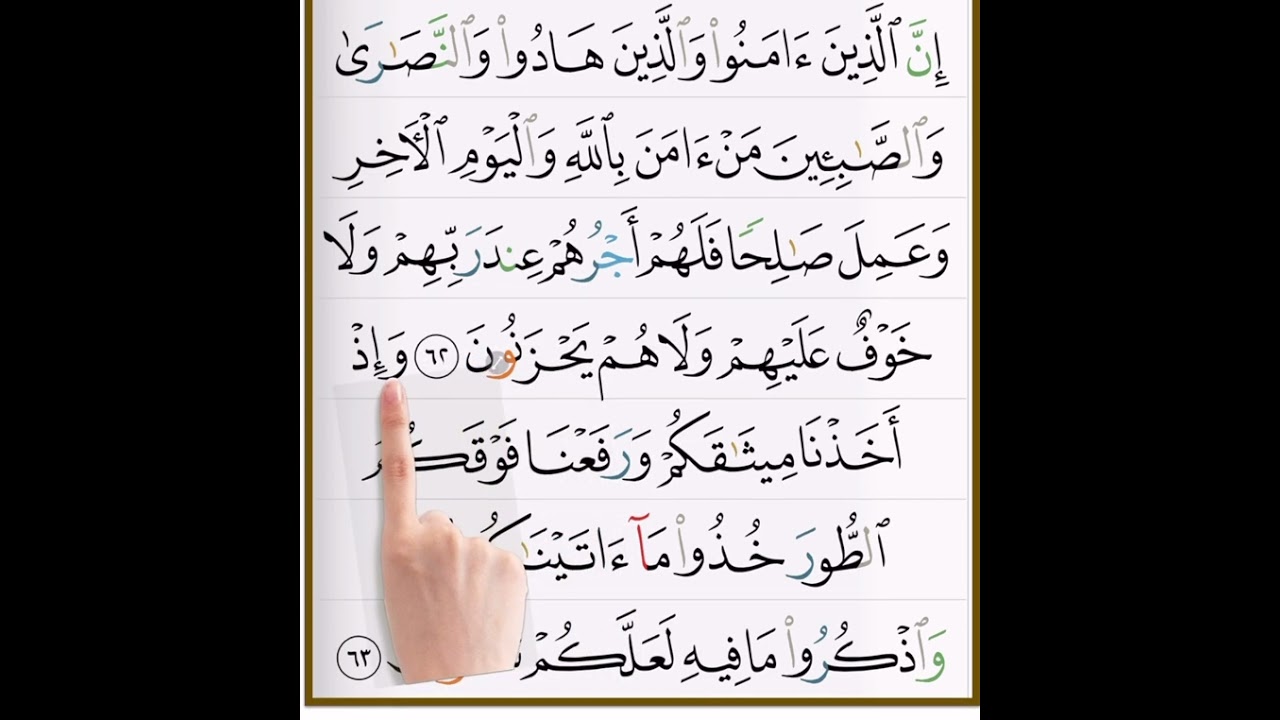 إِنَّ ٱلَّذِينَ ءَامَنُوا۟ وَٱلَّذِينَ هَادُوا۟ وَٱلنَّصَـٰرَىٰ
وَٱلصَّـٰبِـِٔينَ مَنْ ءَامَنَ بِٱللَّهِ وَٱلْيَوْمِ ٱلْـَٔاخِرِ
وَعَمِلَ صَـٰلِحًا فَلَهُمْ أَجْرُهُمْ عِندَ رَبِّهِمْ وَلَا
خَوْفٌ عَلَيْهِمْ وَلَا هُمْ يَحْزَنُونَ ٦٢ وَإِذْ
أَخَذْنَا مِيثَـٰقَكُمْ وَرَفَعْنَا فَوْقَكُمُ
ٱلطُّورَ خُذُوا۟ مَآ
وَٱذْكُرُوا۟ مَا فِيهِ لَعَلَّكُمْ ٦٣